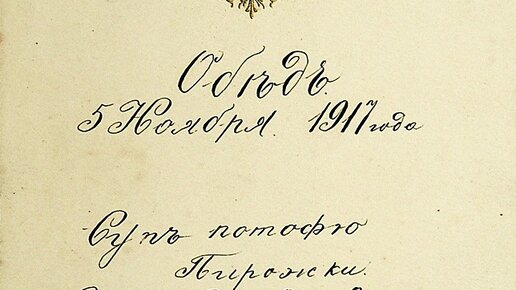 Обѣдъ.
5 Ноября. 1917 года
Супъ потофю
Пирожки.